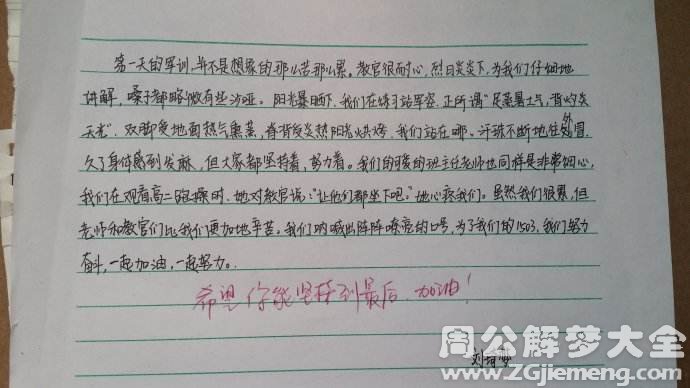 第一天的军训,并不是想象的那么苦那么累。教官很耐心,烈日炎炎下,为我们仔细地
讲解,嗓子都略微有些沙哑。阳光暴晒下,我们在练习站军姿,正所谓“足蒸暑土气,背灼炎
天光”,双脚受地面热气熏蒸,脊背受炎热阳光烘烤,我们站在哪、汗珠不断地往外冒,
久了身体感到发麻,但大家都坚持着,努力着。我们的可爱的班主任老师也同样是非常细心,
我们在观看高二跑操时,她对教官说:“让他们都坐下吧。”她心疼我们。虽然我们很累,但
老师和教官们比我们更加地辛苦。我们呐喊出阵阵嘹亮的口号,为了我们的1503,我们努力
奋斗,一起加油,一起努力。
希望你能坚持到最后,加油!
周公解梦大全
www.ZGjiemeng.com